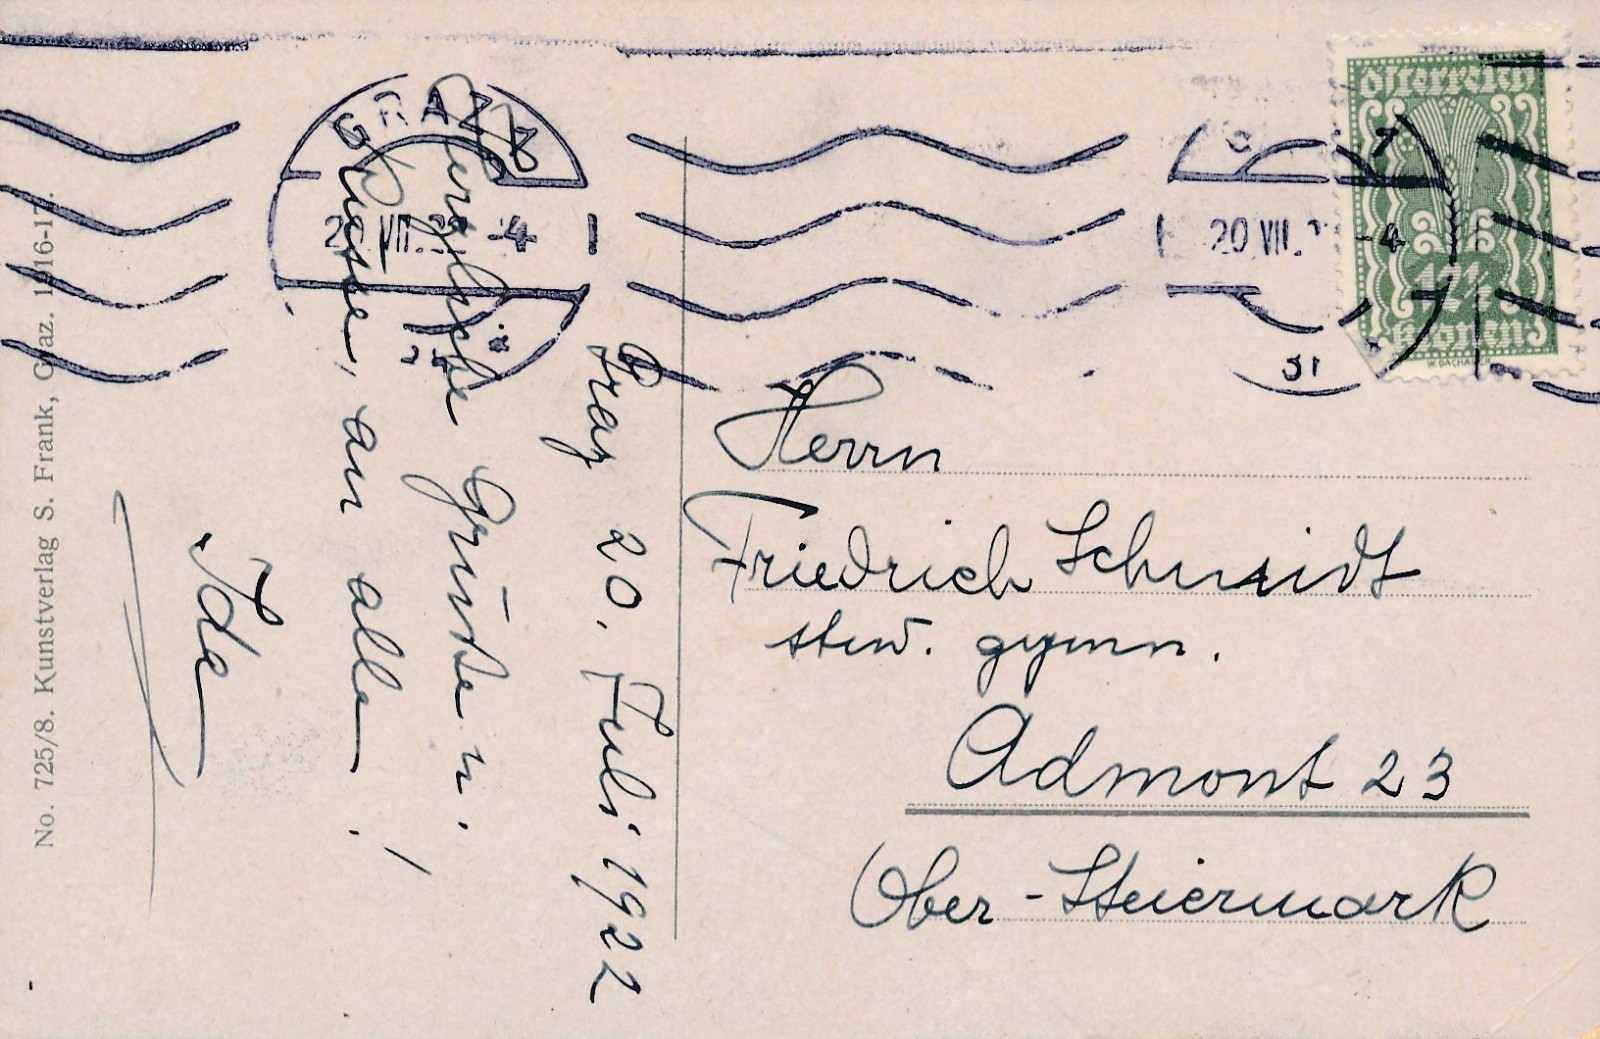 Graz 20. Juli 1922
Herzlichste Grüße u.
Küsse, an alle!
Ida
Herrn
Friedrich Schmidt
stud. gymn.
Admont 23
Ober-Steiermark
No. 725/8. Kunstverlag S. Frank, Graz. 1916-17.
GRAZ
20 VII. -4
20 VII. -4
Österreich
12½
Kronen
W. DACHAUER